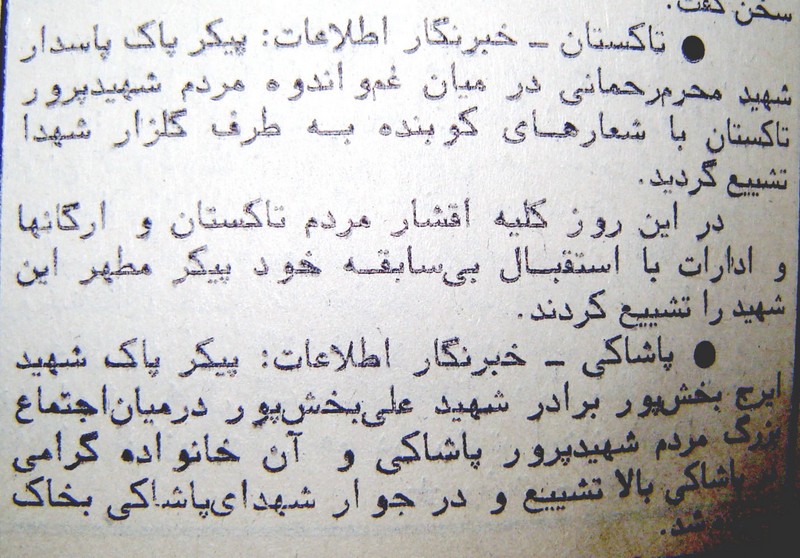 سخن گفت.
● تاکستان ـ خبرنگار اطلاعات: پیکر پاک پاسدار
شهید محرم‌رحمانی در میان غم‌واندوه مردم شهیدپرور
تاکستان با شعارهای کوبنده به طرف گلزار شهدا
تشییع گردید.
در این روز کلیه اقشار مردم تاکستان و ارگانها
و ادارات با استقبال بی‌سابقه خود پیکر مطهر این
شهید را تشییع کردند.
● پاشاکی ـ خبرنگار اطلاعات: پیکر پاک شهید
ایرج بخش‌پور برادر شهید علی‌بخش‌پور درمیان‌اجتماع
بزرگ مردم شهیدپرور پاشاکی و آن خانواده گرامی
پاشاکی بالا تشییع و در جوار شهدای‌پاشاکی بخاک
شد.